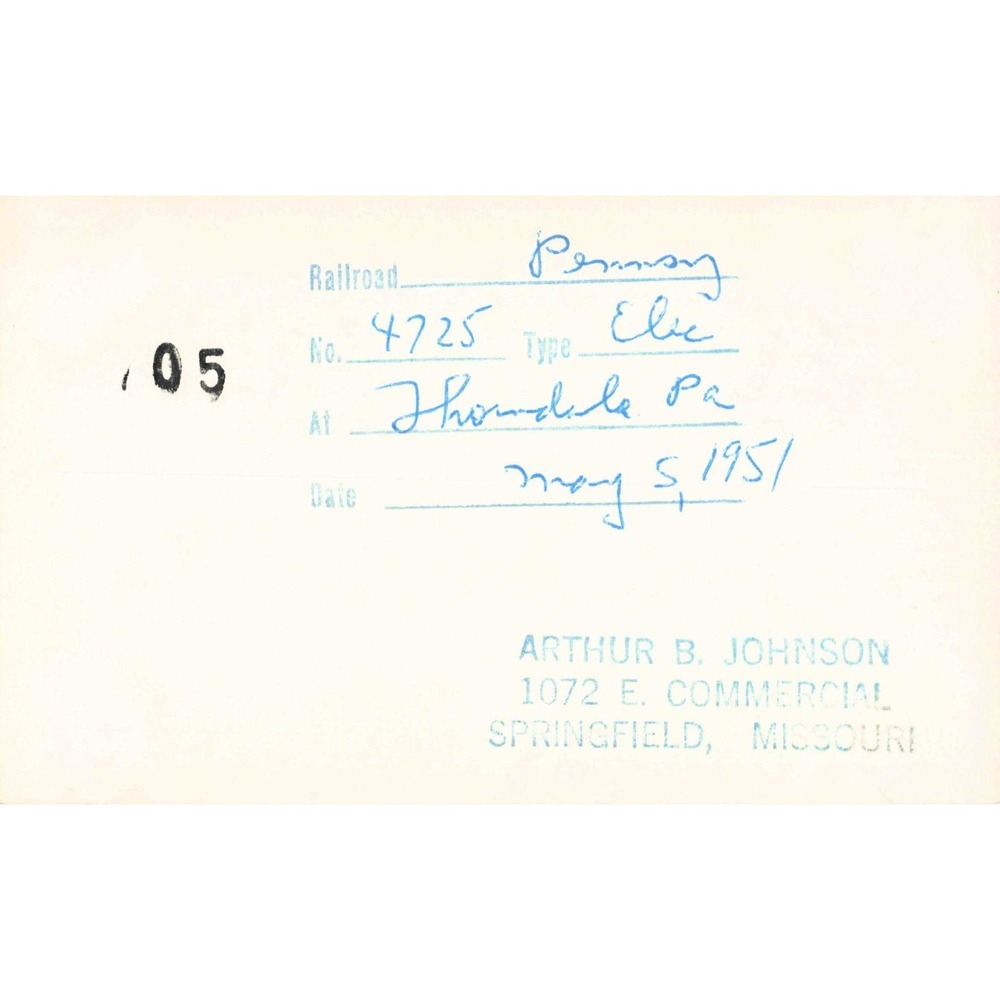 Railroad Pennsy
No. 4725 Type Elec
At Thorndale Pa
Date May 5, 1951
05
ARTHUR B. JOHNSON
1072 E. COMMERCIAL
SPRINGFIELD, MISSOURI